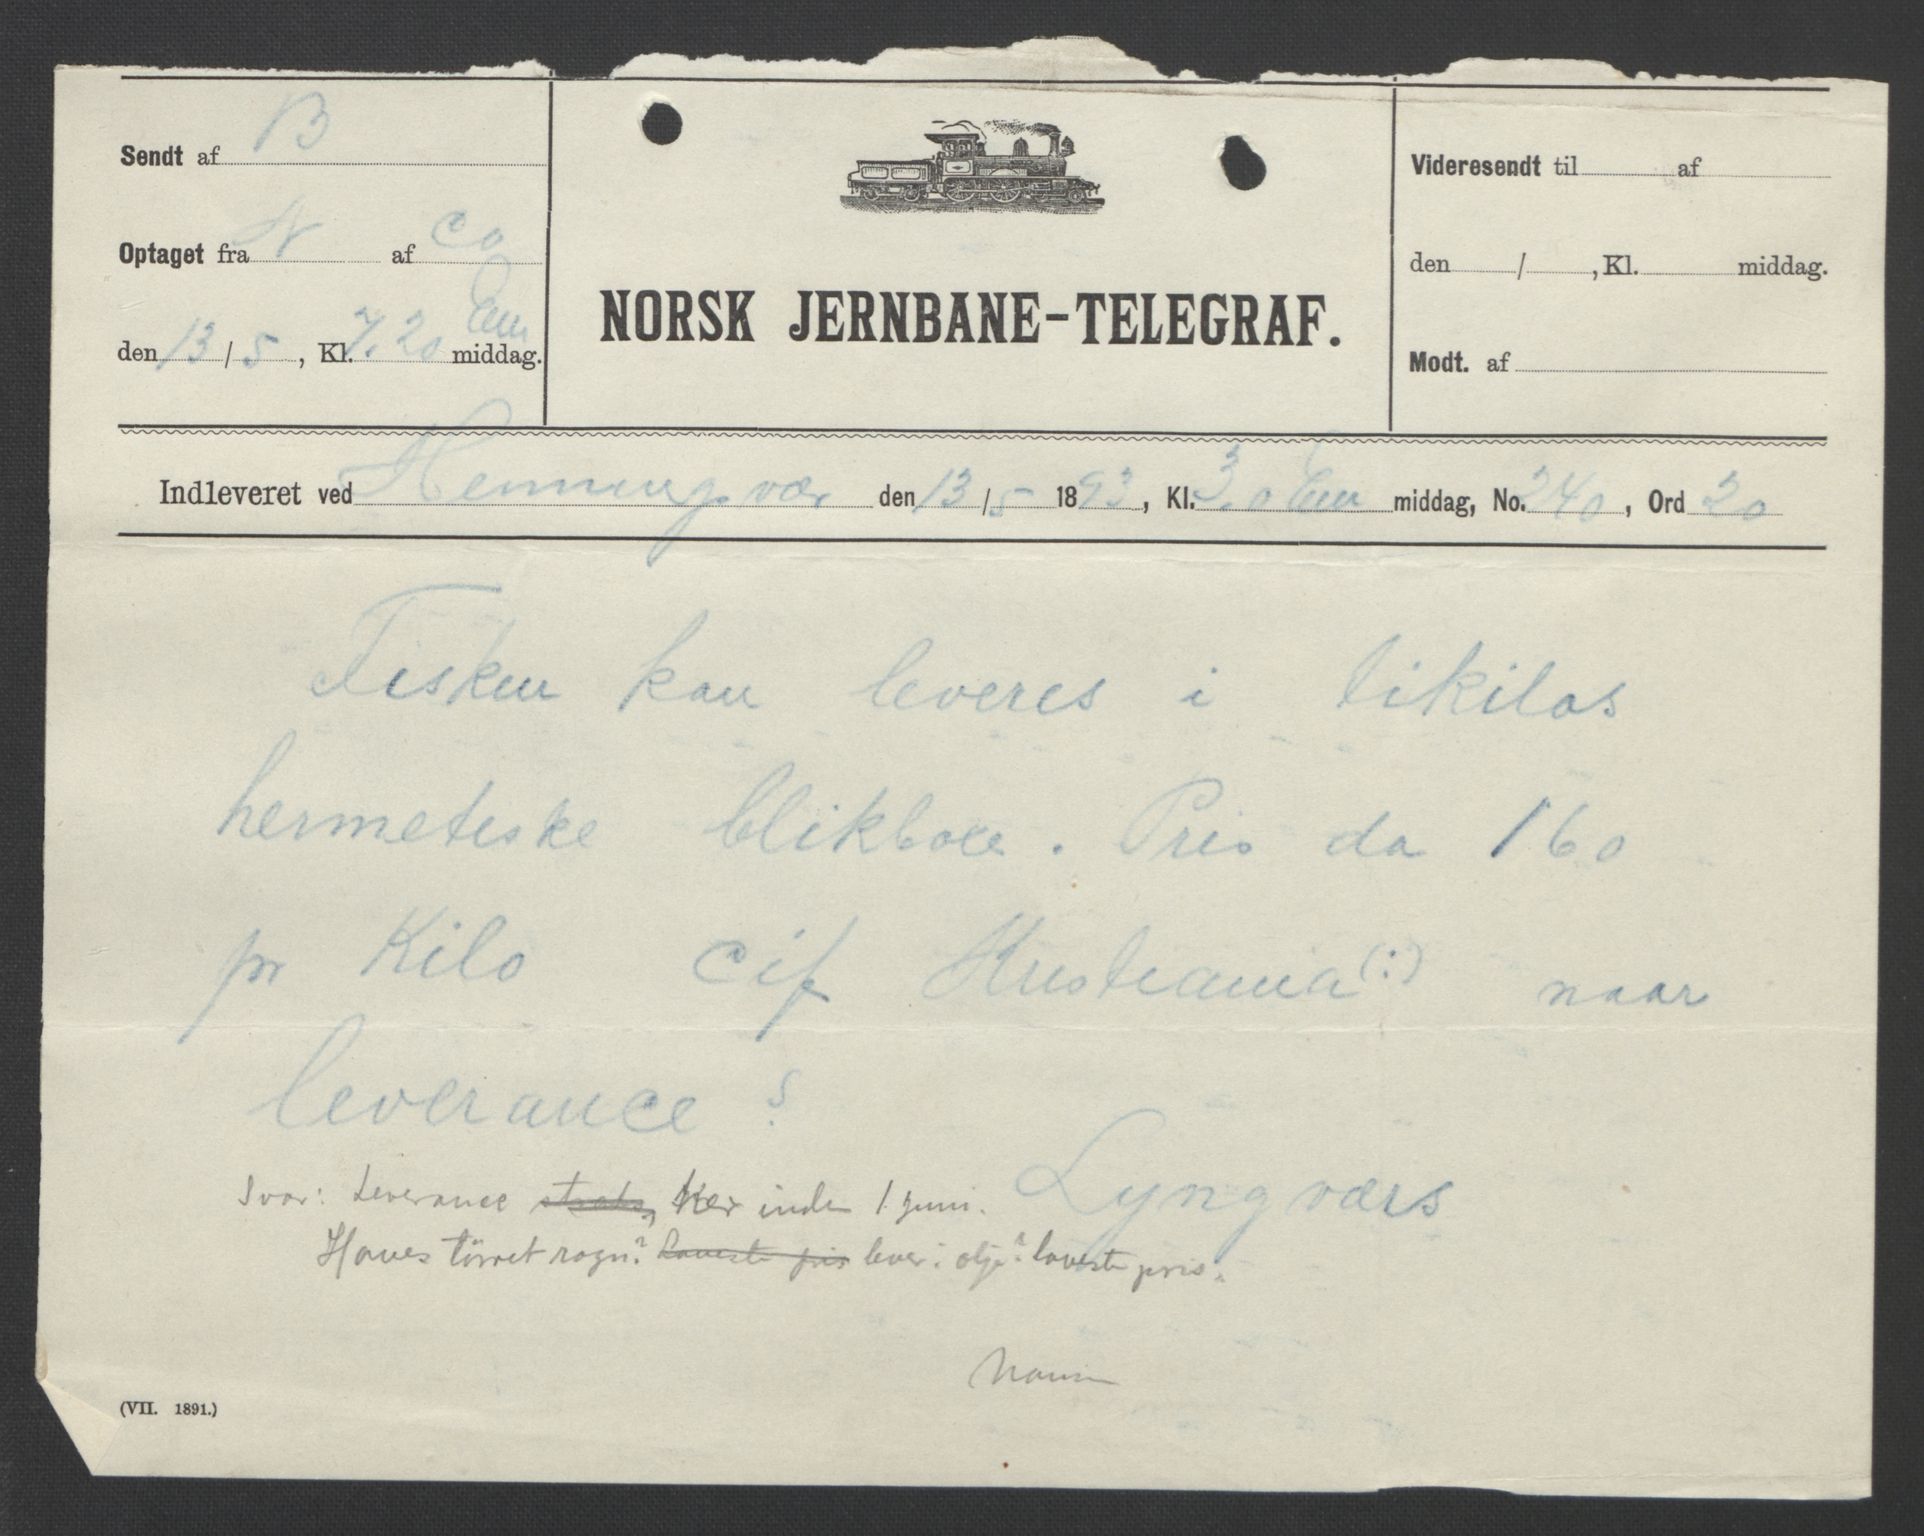 Sendt af B
Optaget fra N af Co
den 13/5, Kl. 7.20 Em middag.
NORSK JERNBANE-TELEGRAF.
Videresendt til af
den / , Kl. middag.
Modt. af
Indleveret ved Henningsvær den 13/5 1893, Kl. 3.0 Em middag, No. 240, Ord 20
Fisken kan leveres i tikilos
hermetiske blikboxe. Pris da 160
pr Kilo cif Kristiania (:) naar
leverance?
Lyngværs
Svar: Leverance straks, Her inden 1 juni.
Haves törret rogn? Laveste pris lever: olje? laveste pris.
Nansen
(VII. 1891.)